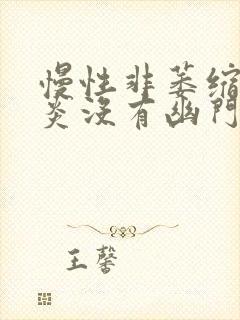 慢性非萎缩
炎没有幽门
王馨